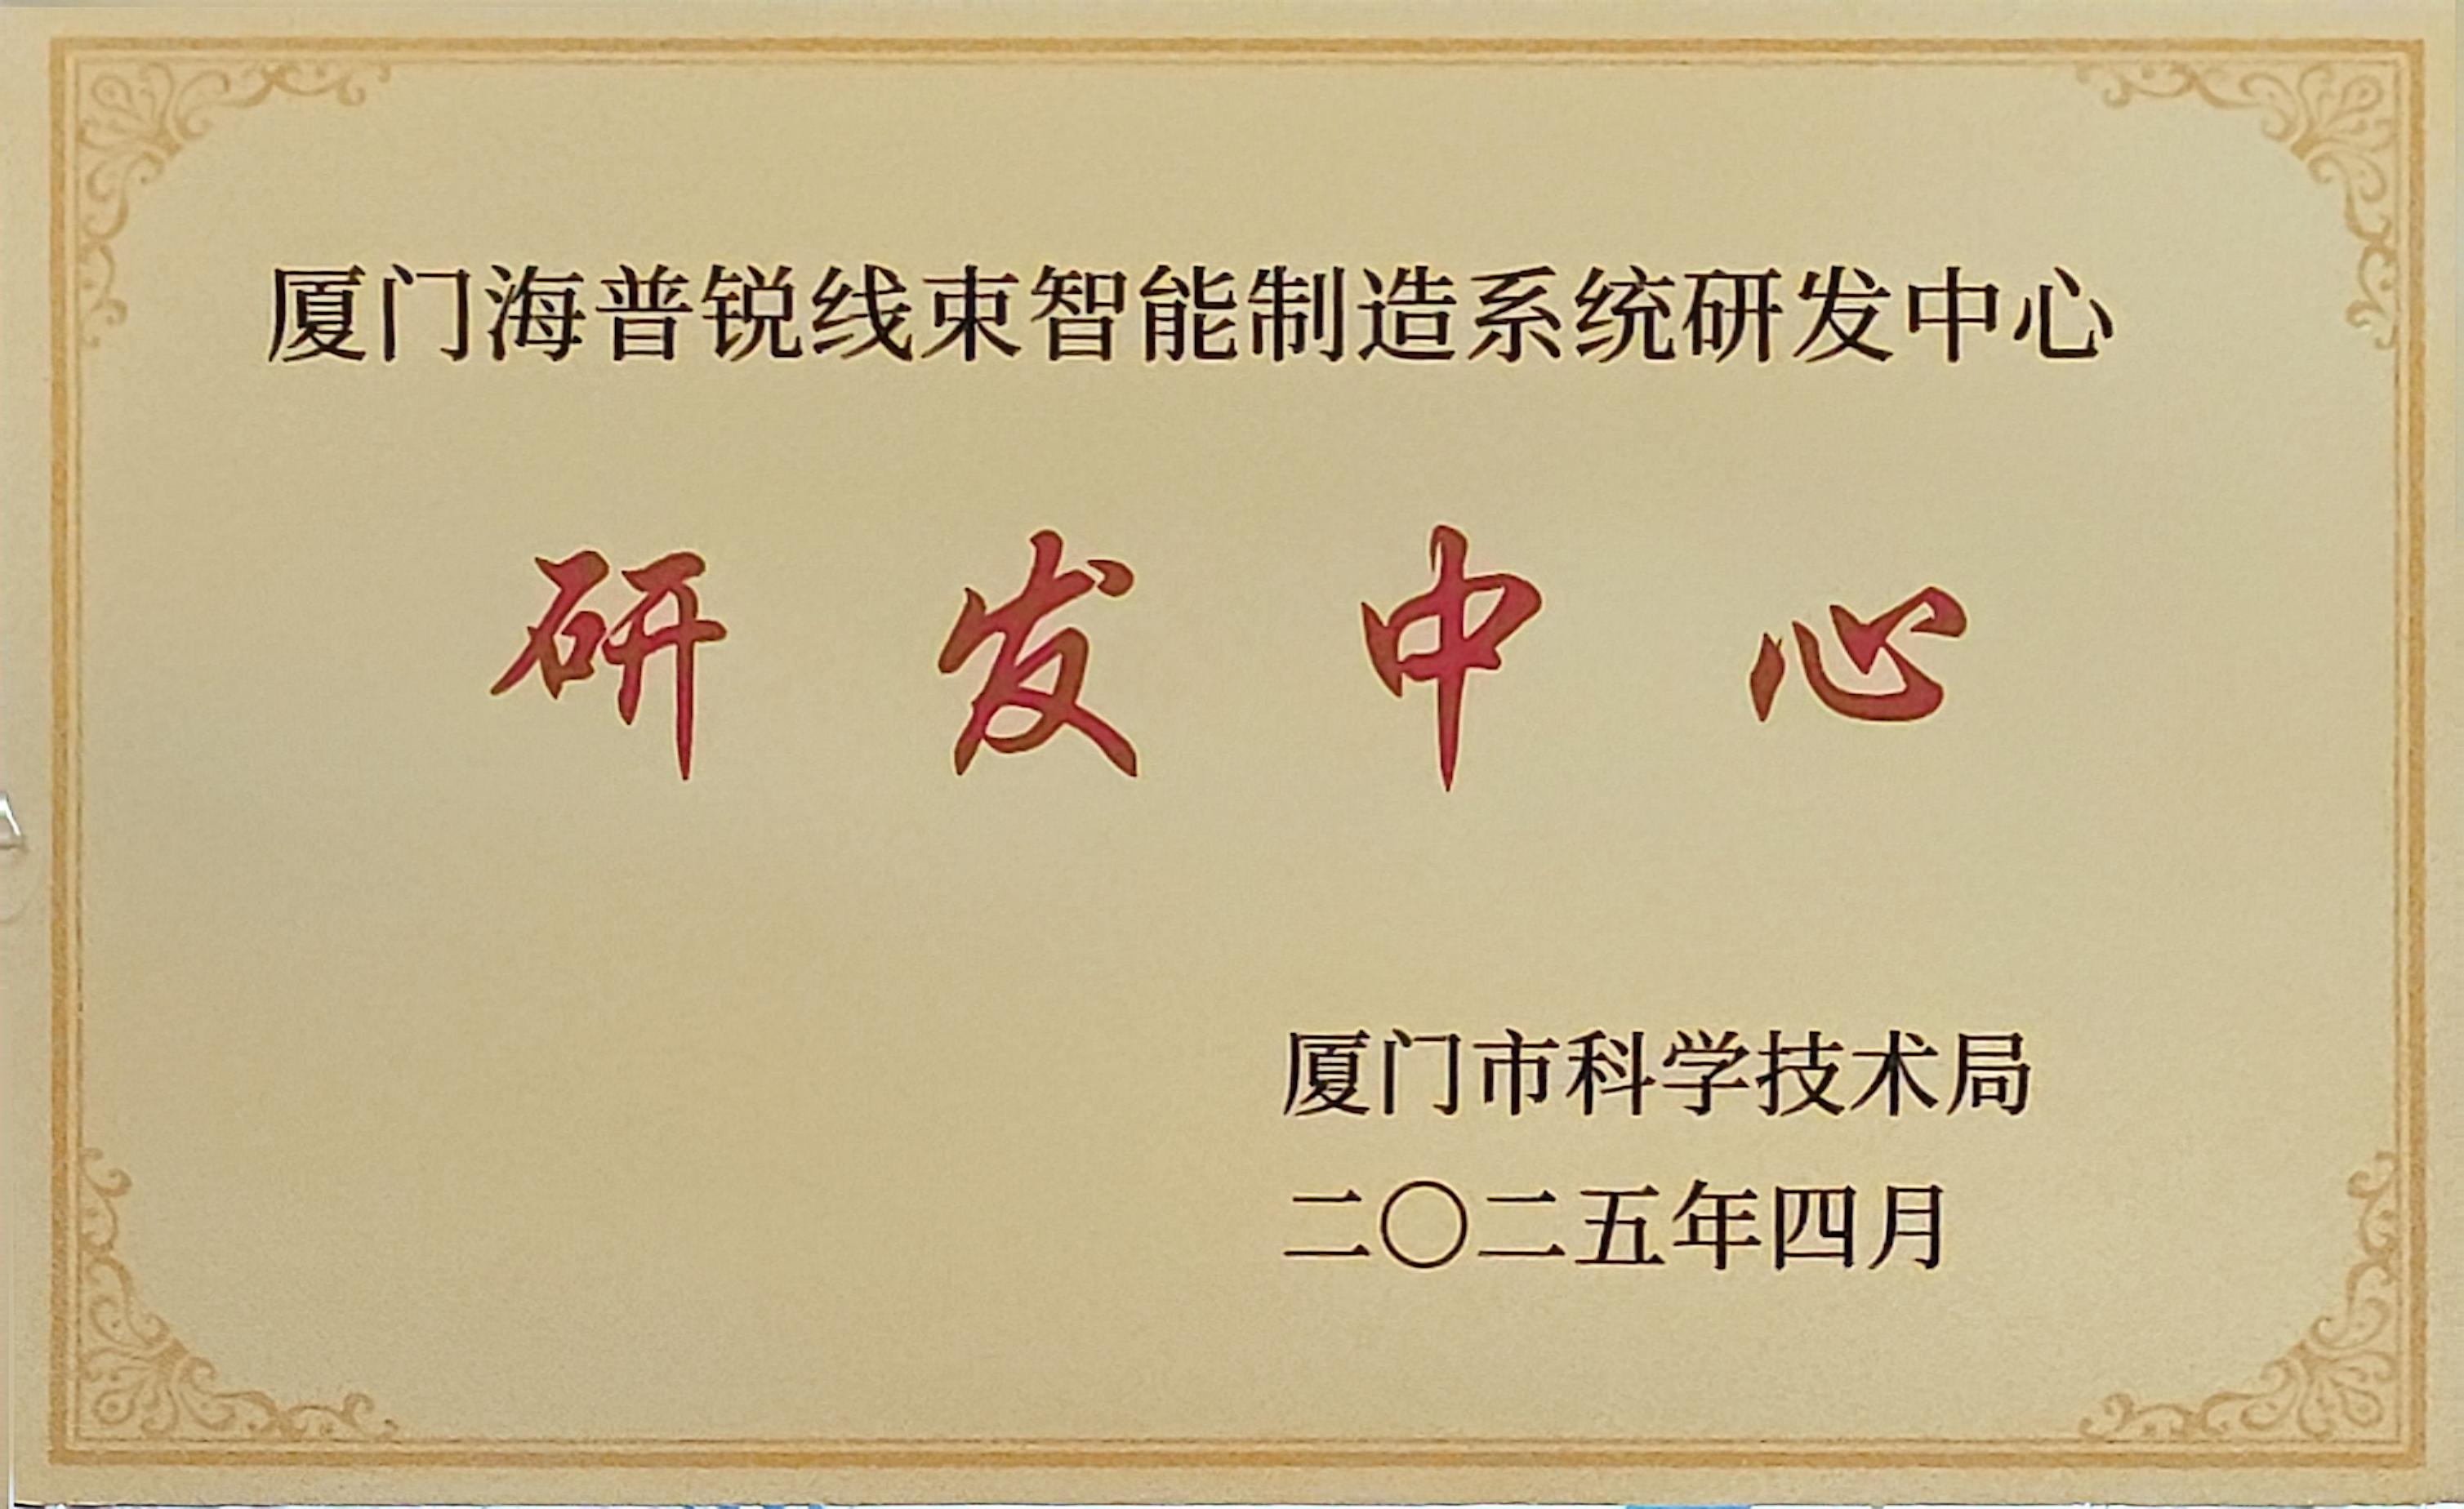 厦门海普锐线束智能制造系统研发中心
研发中心
厦门市科学技术局
二〇二五年四月